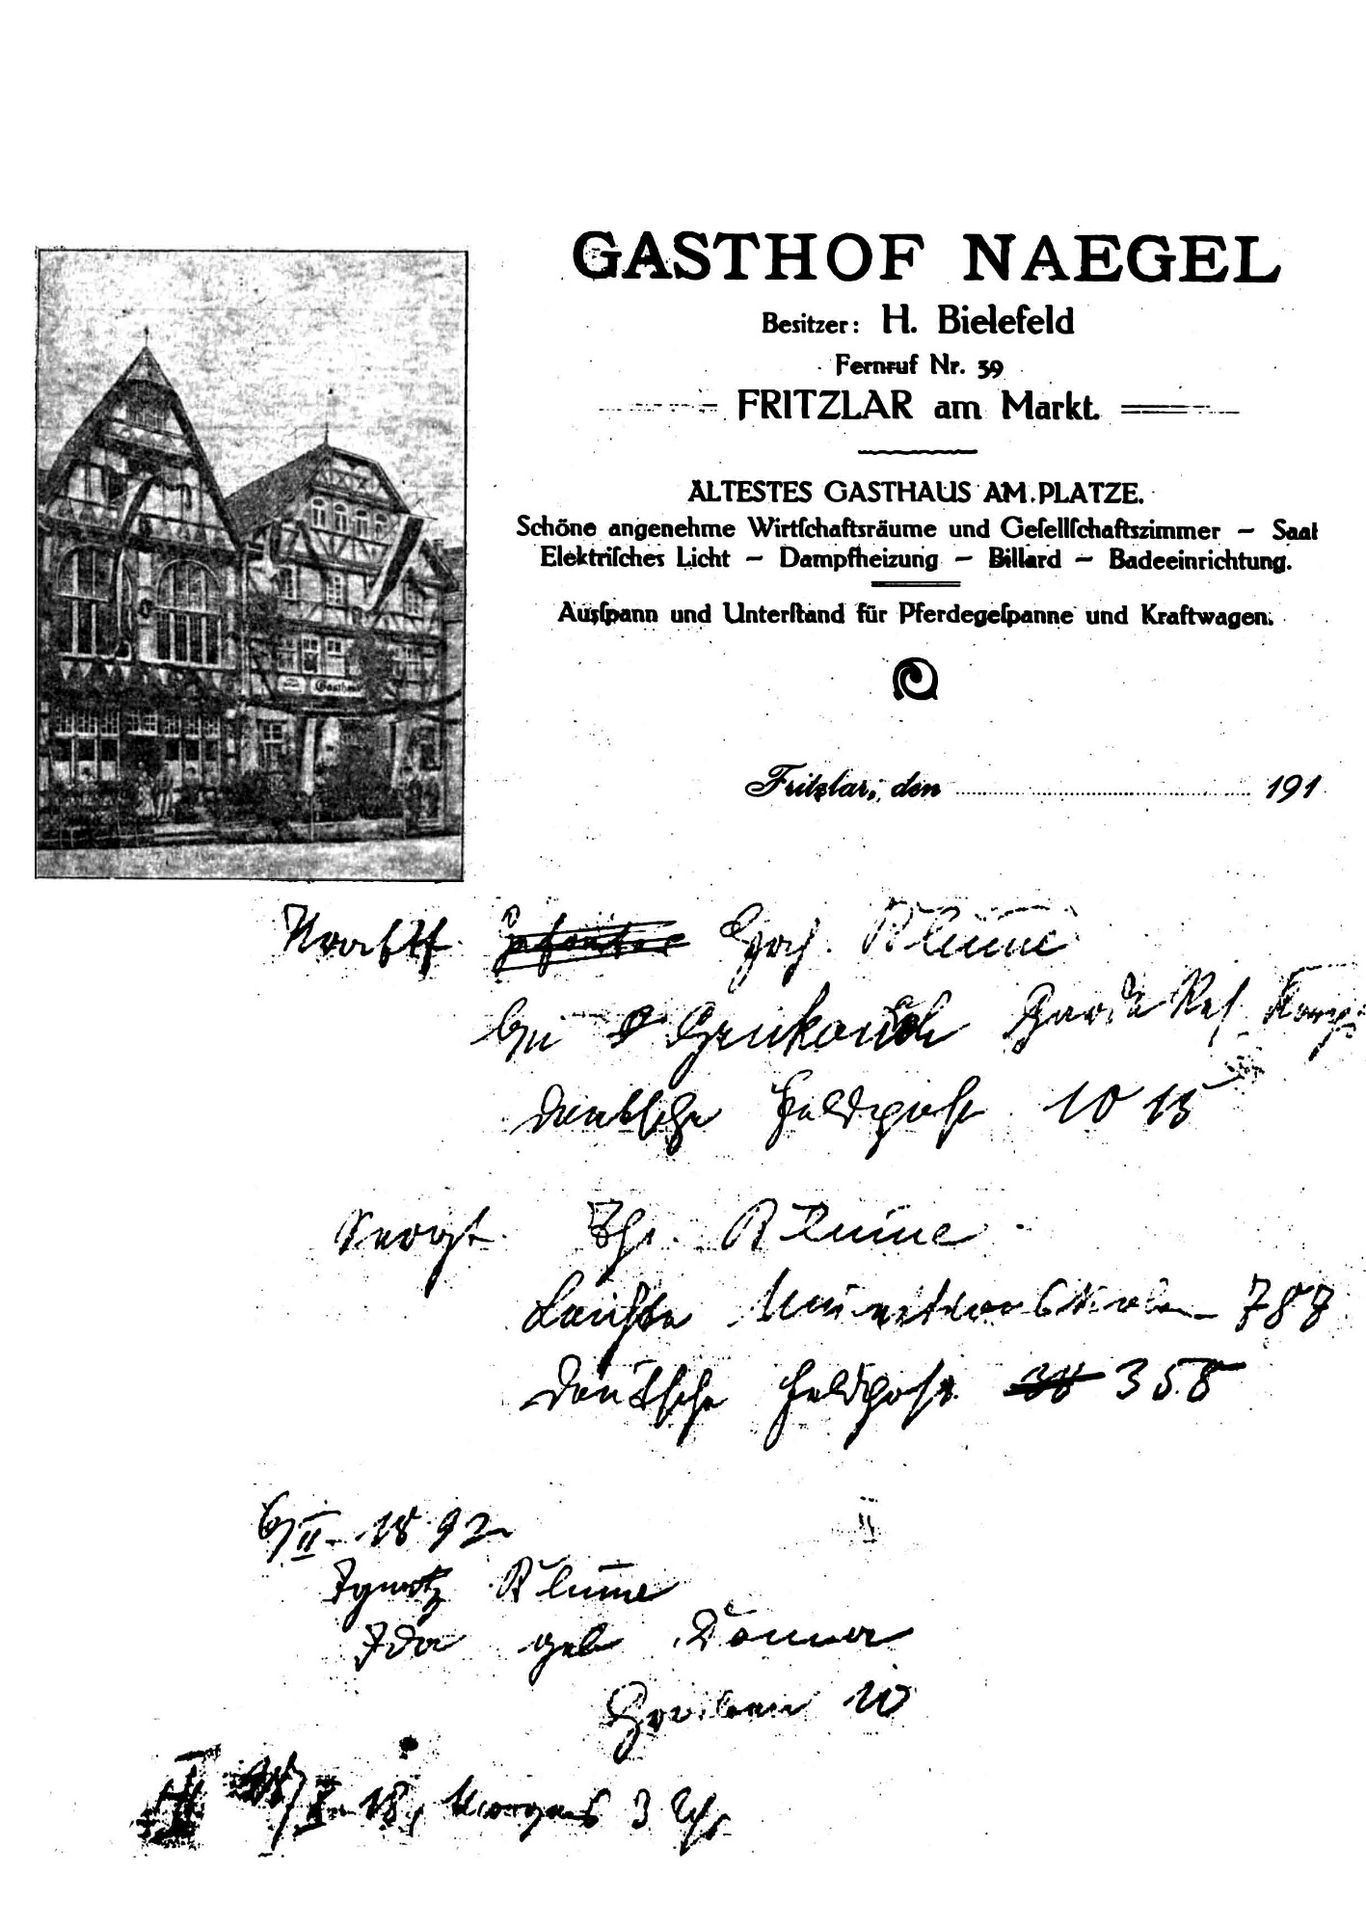 GASTHOF NAEGEL
Besitzer: H. Bielefeld
Fernruf Nr. 59
FRITZLAR am Markt.
ÄLTESTES GASTHAUS AM PLATZE.
Schöne angenehme Wirtſchaftsräume und Geſellſchaftszimmer – Saal
Elektriſches Licht – Dampfheizung – Billard – Badeeinrichtung.
Ausſpann und Unterſtand für Pferdegeſpanne und Kraftwagen.
Gasthaus
Fritzlar, den 191
Joh. Blume
Garde Res. Korps
Deutsche Feldpost 1015
Sergt. Th. Blume
Leichte Munitions Kolon 787
Deutsche Feldpost 358
6/II 1892
Ignatz Blume
Ida geb
10
18, Morgens 3 Uhr